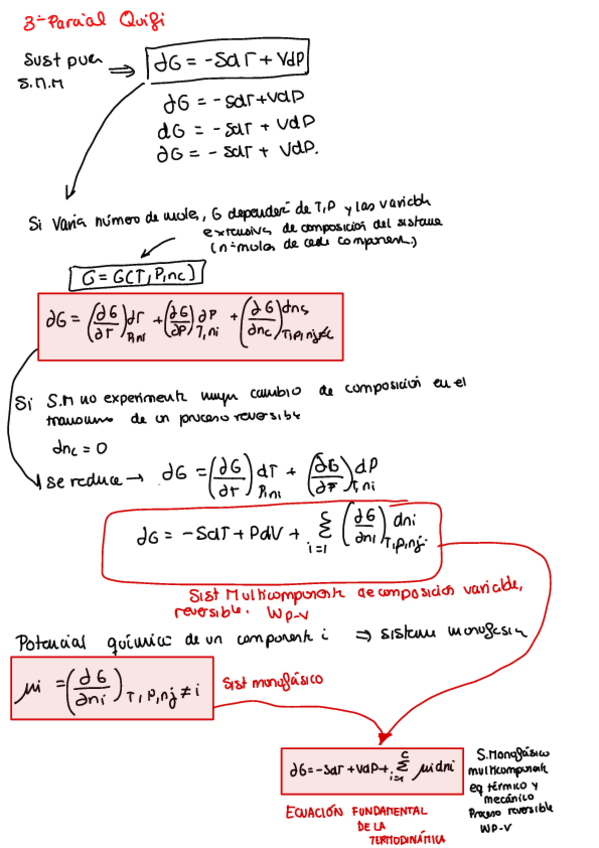 3º Parcial Quifi
Sust pura
S.M.M
⇒ dG = -SdT + VdP
dG = -SdT + VdP
dG = -SdT + VdP
dG = -SdT + VdP.
Si varía número de moles, G dependerá de T, P y las variabls
extensiva de composición del sistema
(nº moles de cada component.)
G = G(T, P, nc)
dG = (∂G/∂T)P,ni dT + (∂G/∂P)T,ni dP + (∂G/∂nc)T,P,nj≠c dnc
Si S.M no experimenta ningun cambio de composición en el
transcurso de un proceso reversible
dnc = 0
se reduce → dG = (∂G/∂T)P,ni dT + (∂G/∂P)T,ni dP
dG = -SdT + PdV + Σ i=1 c (∂G/∂ni)T,P,nj dni
Sist Multicomponente de composición variable,
reversible. WP-V
Potencial química de un component i ⇒ sistema monofásico
μi = (∂G/∂ni) T, P, nj ≠ i
Sist monofásico
dG = -SdT + VdP + Σ i=1 c μi dni
S.Monofásico
multicomponente
eq térmico y
mecánico
Proceso reversible
WP-V
ECUACIÓN FUNDAMENTAL
DE LA
TERMODINÁMICA